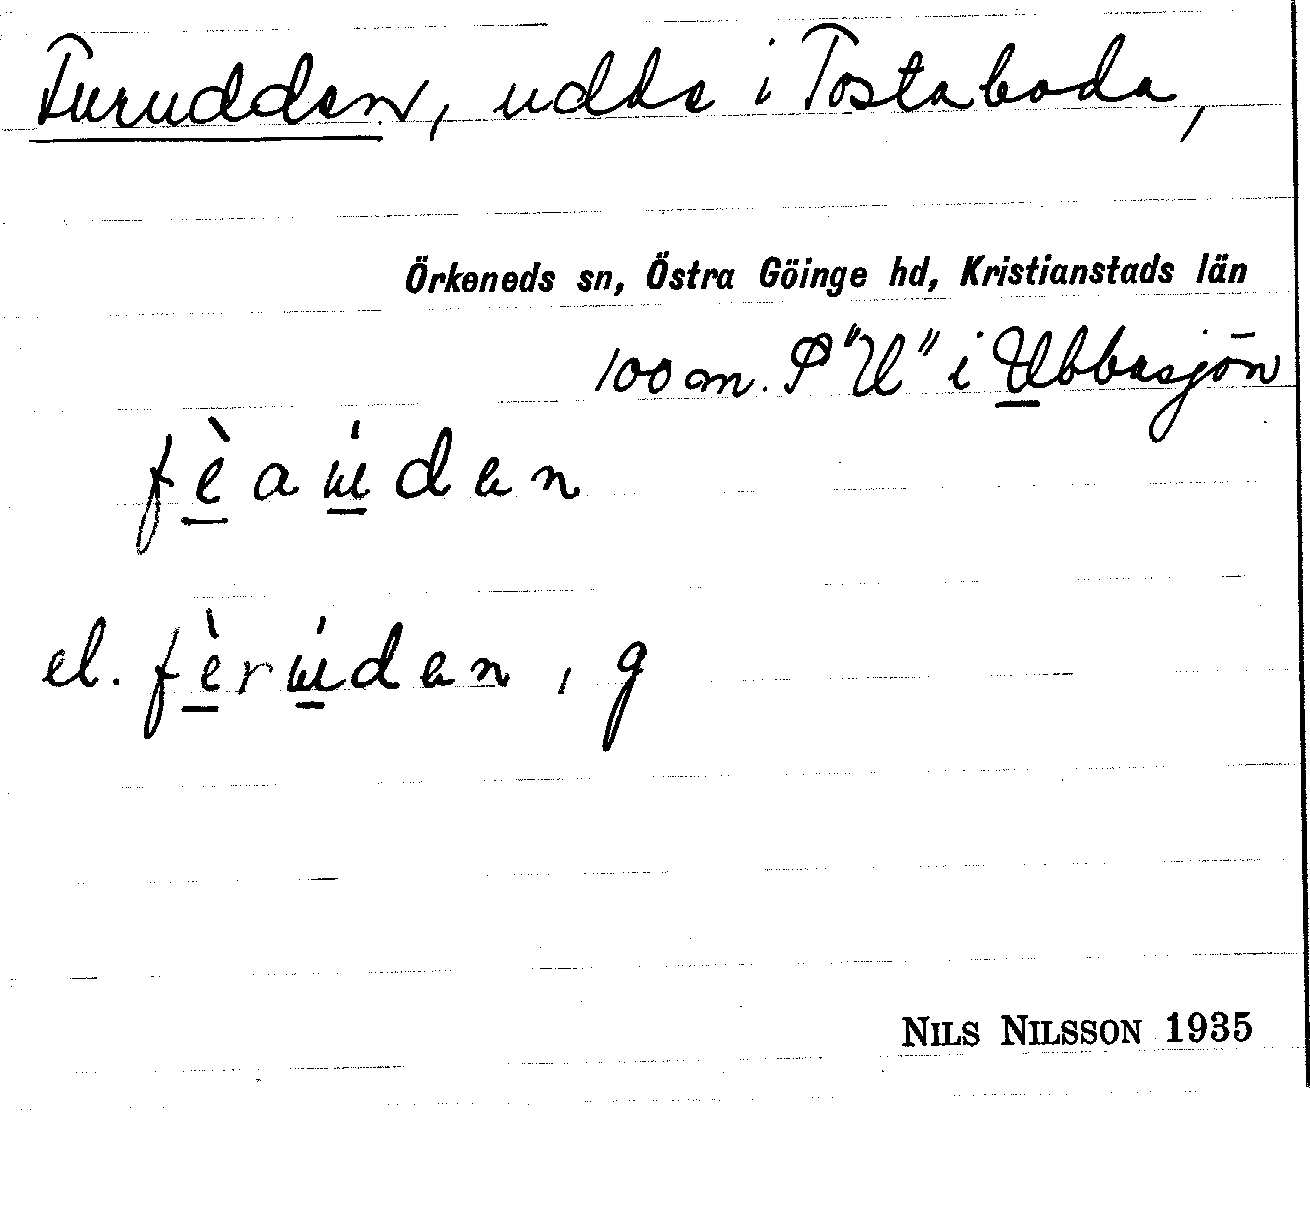 Furudden, udde i Tostaboda,
Örkeneds sn, Östra Göinge hd, Kristianstads län
100 m. P "U" i Ubbasjön
fèaúden
el. fèrúden, g
NILS NILSSON 1935